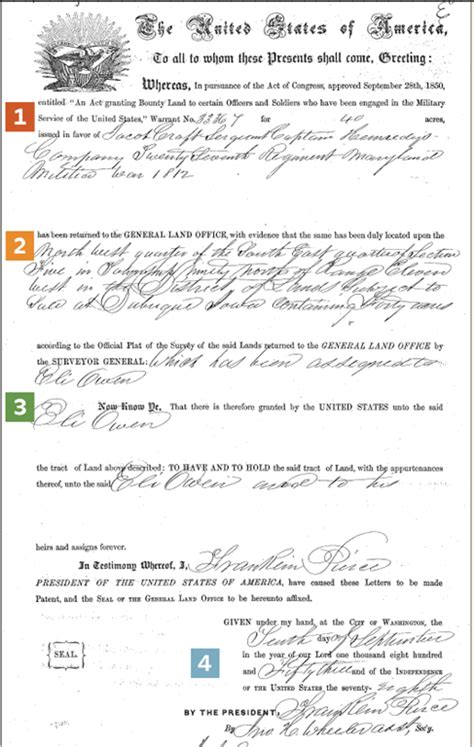 The United States of America,
To all to whom these Presents shall come, Greeting:
Whereas, In pursuance of the Act of Congress, approved September 28th, 1850,
entitled "An Act granting Bounty Land to certain Officers and Soldiers who have been engaged in the Military
1
Service of the United States," Warrant No. 32367 for 40 acres,
issued in favor of Jacob Craft Sergeant Captain
Company Twenty Seventh Regiment Maryland
Militia War 1812
2
has been returned to the GENERAL LAND OFFICE, with evidence that the same has been duly located upon the
North West quarter of the South East quarter of Section
Five in Township ninety north of Range Eleven
West in the District of Lands Subject to
Sale at Dubuque Iowa containing Forty acres
according to the Official Plat of the Survey of the said Lands returned to the GENERAL LAND OFFICE by
the SURVEYOR GENERAL: Which has been assigned to
Eli Owen
3
Now Know Ye, That there is therefore granted by the UNITED STATES unto the said
Eli Owen
the tract of Land above described: TO HAVE AND TO HOLD the said tract of Land, with the appurtenances
thereof, unto the said Eli Owen and to his
heirs and assigns forever.
In Testimony Whereof, I, Franklin Pierce
PRESIDENT OF THE UNITED STATES OF AMERICA, have caused these Letters to be made
Patent, and the SEAL OF THE GENERAL LAND OFFICE to be hereunto affixed.
GIVEN under my hand, at the CITY OF WASHINGTON, the
Tenth day of September
4
in the year of our Lord one thousand eight hundred
SEAL.
and Fifty three and of the INDEPENDENCE
OF THE UNITED STATES the seventy-eighth
BY THE PRESIDENT: Franklin Pierce
By Jno H. Wheeler asst Sec'y.